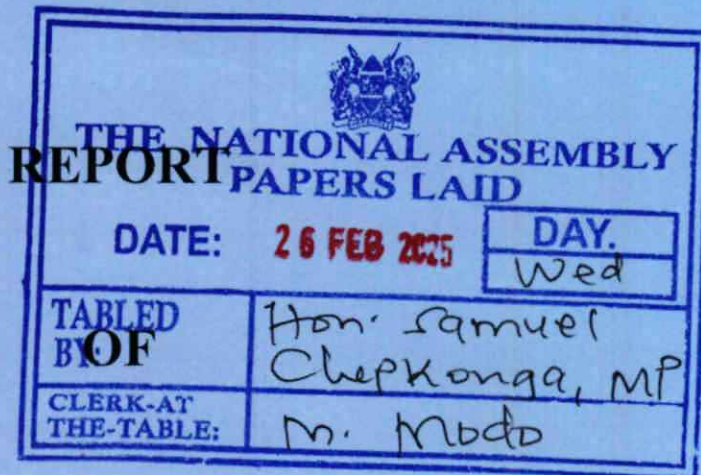 THE NATIONAL ASSEMBLY
REPORT
PAPERS LAID
DATE: 26 FEB 2025
DAY.
Wed
TABLED
BY:
OF
Hon. Samuel
Chepkonga, MP
CLERK-AT
THE-TABLE:
M. Modo